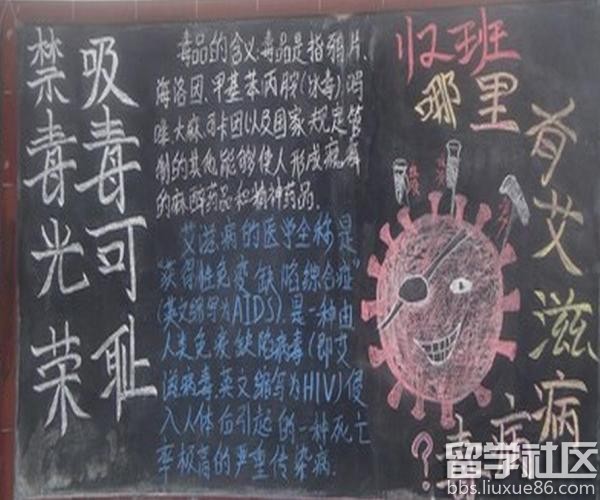 吸毒可耻
禁毒光荣
毒品的含义:毒品是指鸦片、
海洛因、甲基苯丙胺(冰毒)、吗
啡、大麻、可卡因以及国家规定管
制的其他能够使人形成瘾癖
的麻醉药品和精神药品。
艾滋病的医学全称是
"获得性免疫缺陷综合症"
(英文缩写为AIDS),是一种由
人类免疫缺陷病毒(即艾
滋病毒,英文缩写为HIV)侵
入人体后引起的一种死亡
率极高的严重传染病。
班
哪里
有艾滋病
病毒?
留学社区
bbs.liuxue86.com